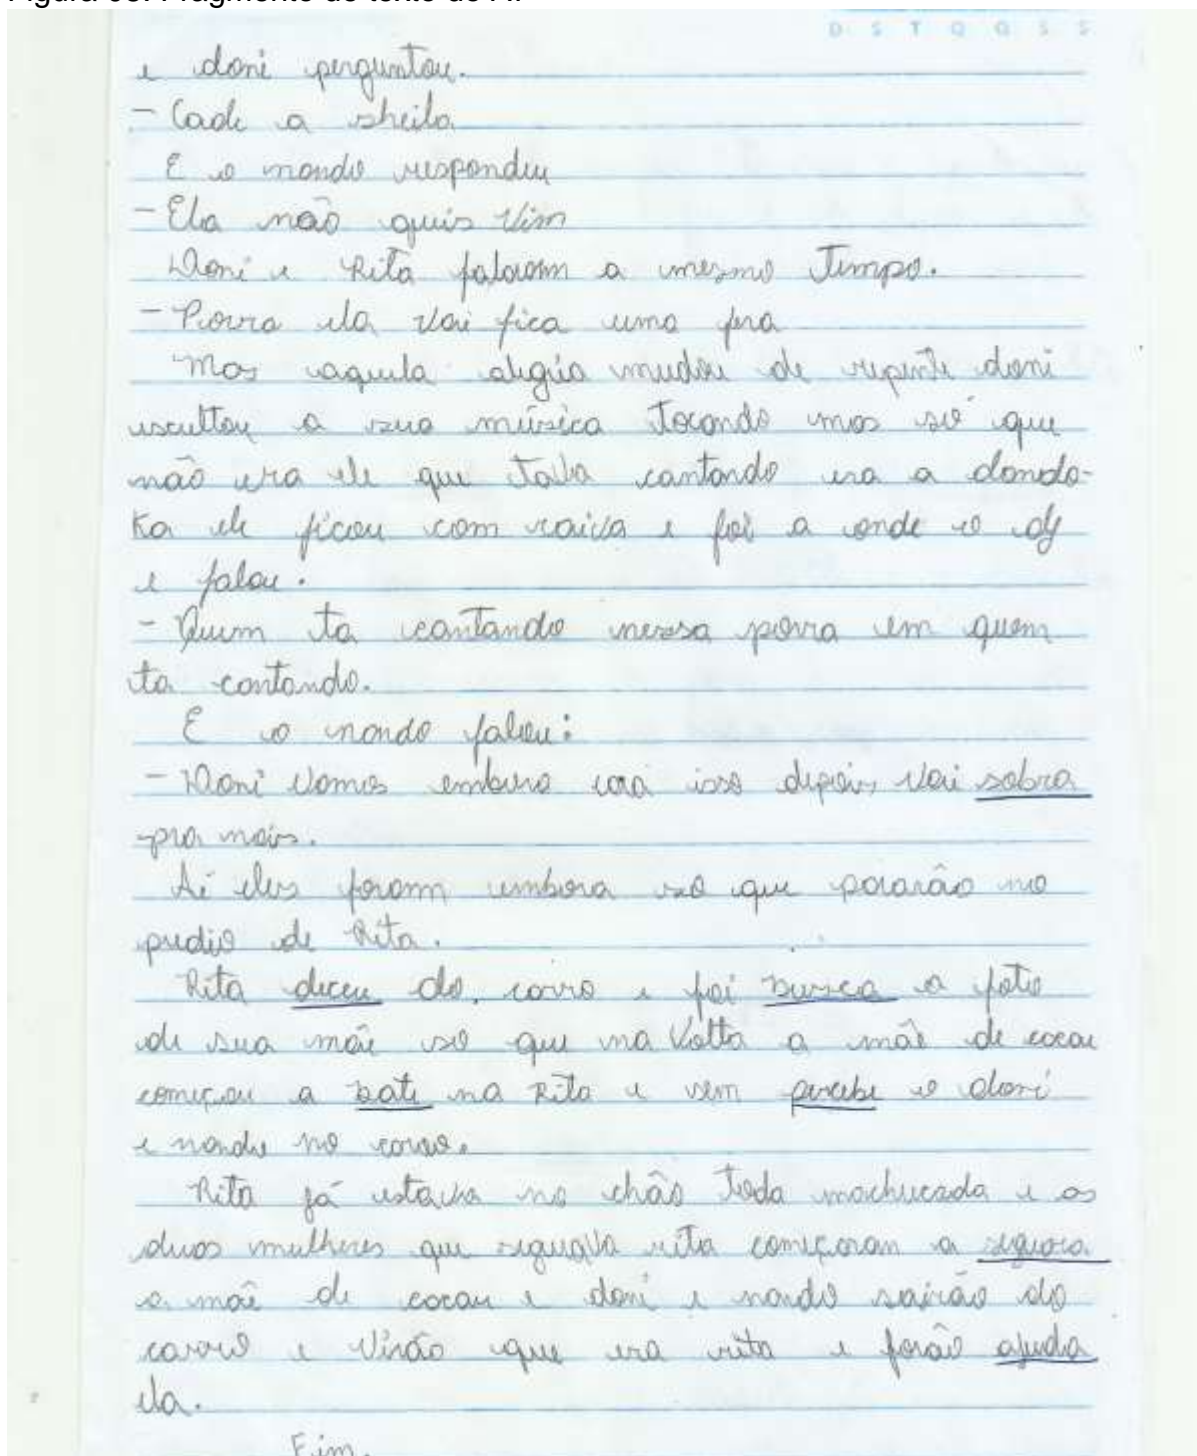 D S T Q Q S S
e doni perguntou.
- Cade a sheila
E o nando respondeu
- Ela não quis vim
Doni e Rita falaram a mesmo Tempo.
- Porra ela vai fica uma fera
Mas aquela alegria mudou de repente doni
escultou a sua música tocando mas só que
não era ele que tava cantando era a dondo-
ka ele ficou com raiva e foi a onde o dj
e falou.
- Quem ta cantando nessa porra em quem
ta cantando.
E o nando falou:
- Doni vamos embora isso depois vai sobra
pra nois.
Aí eles foram embora só que pararão no
predio de Rita.
Rita deceu do carro e foi busca a foto
de sua mãe so que na volta a mãe de cacau
começou a bate na Rita e sem percebe o doni
e nando no carro.
Rita já estava no chão toda machucada e as
duas mulheres que segurava rita começaram a segura
a mãe de cacau e doni e nando sairão do
carro e virão que era rita e forão ajuda
ela.
Fim.